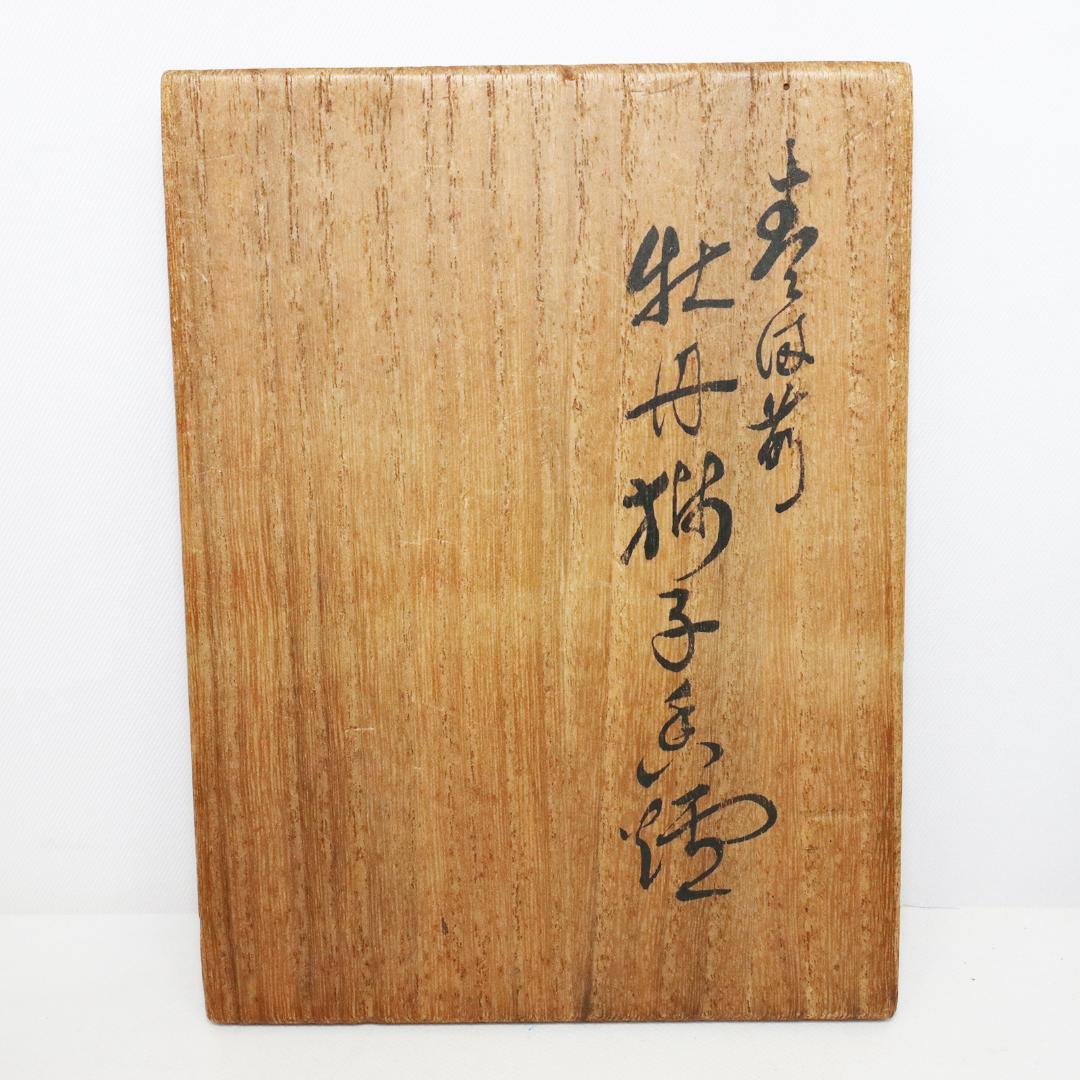 青備前
牡丹獅子香爐